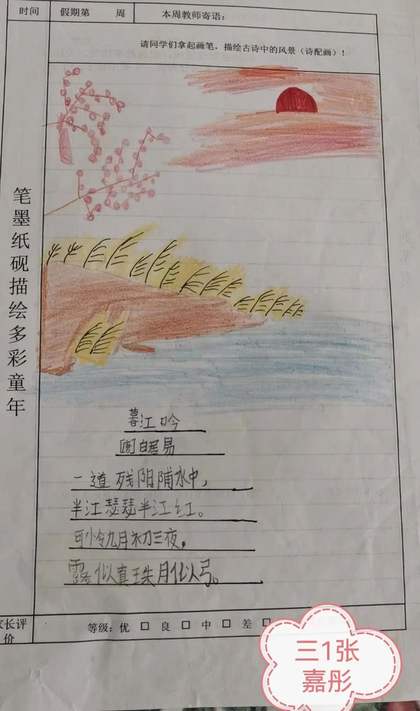 时间 假期第 周 本周教师寄语:
请同学们拿起画笔,描绘古诗中的风景(诗配画)!
笔墨纸砚描绘多彩童年
暮江吟
白居易
一道残阳铺水中,
半江瑟瑟半江红。
可怜九月初三夜,
露似真珠月似弓。
家长评价 等级:优 □ 良 □ 中 □ 差 □
三1张
嘉彤